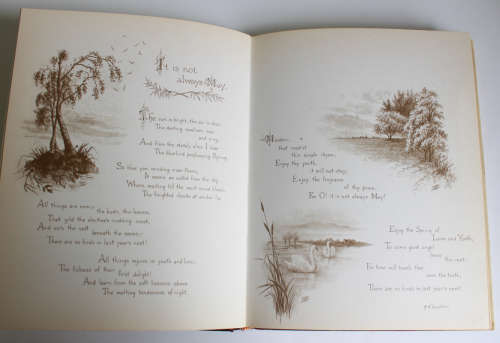 It is not
always May.
The sun is bright, the air is clear,
The darting swallows soar
and sing,
And from the stately elms I hear
The blue-bird prophesying Spring.
So blue yon winding river flows,
It seems an outlet from the sky,
Where, waiting till the west wind blows,
The freighted clouds at anchor lie.
All things are new;— the buds, the leaves,
That gild the elm-tree's nodding crest,
And even the nest beneath the eaves;—
There are no birds in last year's nest!
All things rejoice in youth and love,
The fulness of their first delight!
And learn from the soft heavens above
The melting tenderness of night.
Maiden,
that read'st
this simple rhyme,
Enjoy thy youth,
it will not stay;
Enjoy the fragrance
of thy prime,
For O! it is not always May!
Enjoy the Spring of
Love and Youth,
To some good angel
leave the rest;
For Time will teach thee
soon the truth,
There are no birds in last year's nest!